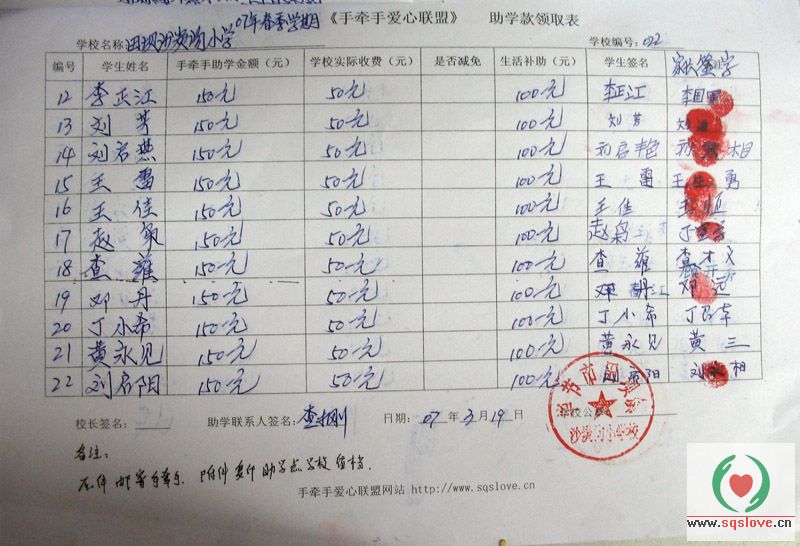 07年春季学期《手牵手爱心联盟》 助学款领取表
学校名称 小学 学校编号:022
编号 学生姓名 手牵手助学金额（元） 学校实际收费（元） 是否减免 生活补助（元） 学生签名 家长签字
12 李正江 150元 50元 100元 李正江 李国
13 刘芳 150元 50元 100元 刘芳 刘
14 刘启燕 150元 50元 100元 刘启艳 相
15 王雷 150元 50元 100元 王雷 王 勇
16 王佳 150元 50元 100元 王佳 王恒
17 赵 150元 50元 100元 赵 丁
18 查雄 150元 50元 100元 查雄 查 文
19 邓丹 150元 50元 100元 邓丹 邓
20 丁小希 150元 50元 100元 丁小希 丁
21 黄永见 150元 50元 100元 黄永见 黄三
22 刘启阳 150元 50元 100元 刘 阳 刘 相
校长签名: 助学联系人签名: 查 刚 日期: 07 年 3 月 19 日 学校公章
备注:
原件邮寄 附件 助学点学校留档.
手牵手爱心联盟网站 http://www.sqslove.cn
www.sqslove.cn